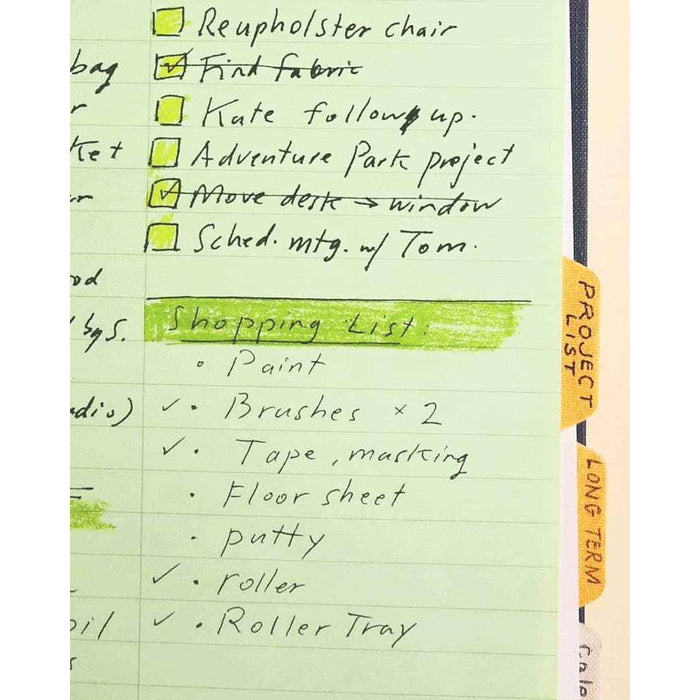 Reupholster chair
Find fabric
Kate follow up.
Adventure Park project
Move desk → window
Sched. mtg. w/ Tom.
Shopping List:
• Paint
✓ • Brushes × 2
✓ • Tape, masking
• Floor sheet
• putty
✓ • roller
✓ • Roller Tray
bag
ket
od
bgs.
adio)
oil
PROJECT
LIST
LONG TERM
Cale